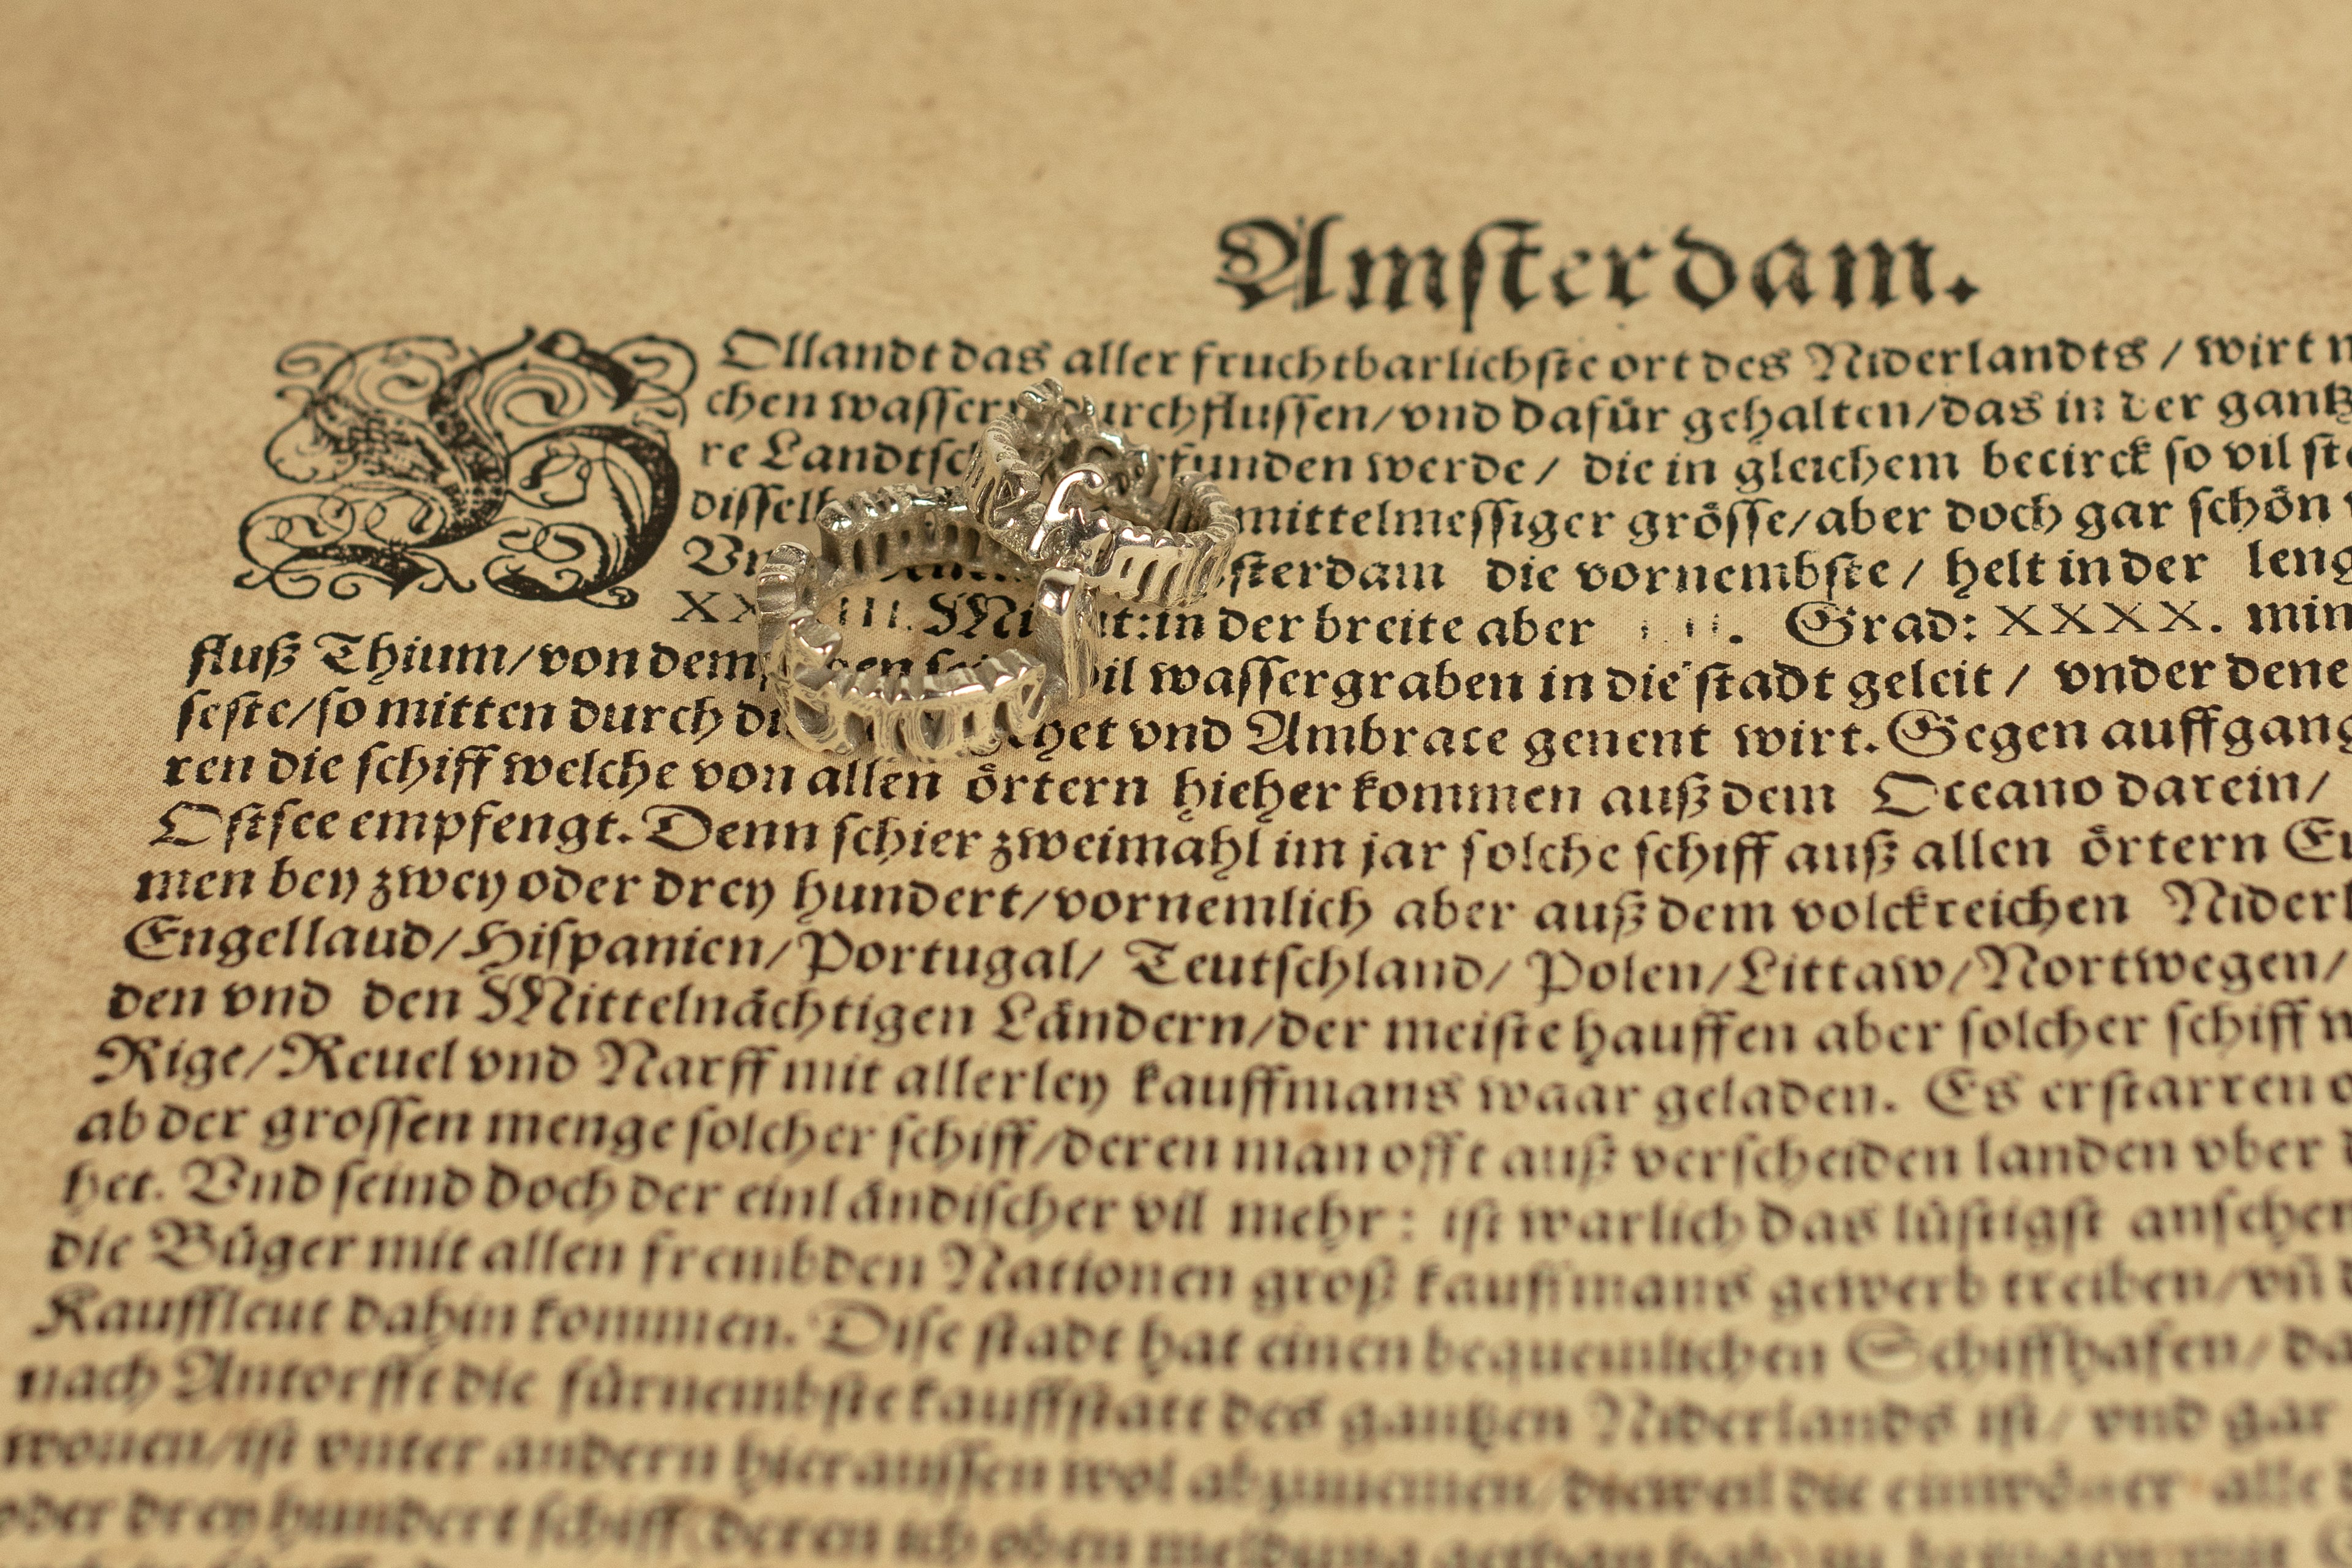 Amſterdam.
HOllandt das aller fruchtbarlichſte ort des Niderlandts / wirt
chen waſſern durchfluſſen/vnd dafür gehalten/das in der gantz
re Landtſch funden werde / die in gleichem becirck ſo vil
diſſelb mittelmeſſiger gröſſe/aber doch gar ſchön
ſterdam die vornembſte / helt in der leng
XX III. Mi t: in der breite aber Grad: XXXX. min
fluß Thium/von dem vil waſſergraben in die ſtadt geleit / vnder dene
ſeſte/ſo mitten durch het vnd Ambrace genent wirt. Gegen auffgang
ren die ſchiff welche von allen örtern hieher kommen auß dem Oceano darein/
Oſtſee empfengt. Denn ſchier zweimahl im jar ſolche ſchiff auß allen örtern
men bey zwey oder drey hundert/vornemlich aber auß dem volckreichen Nider
Engellaud/Hiſpanien/Portugal/ Teutſchland/ Polen/Littaw/Nortwegen/
den vnd den Mittelnächtigen Ländern/der meiſte hauffen aber ſolcher ſchiff
Rige/Reuel vnd Narff mit allerley kauffmans waar geladen. Es erſtarren
ab der groſſen menge ſolcher ſchiff/deren man offt auß verſcheiden landen vber
het. Vnd ſeind doch der einländiſcher vil mehr: iſt warlich das lüſtigſt anſchen
die Büger mit allen frembden Nationen groß kauffmans gewerb treiben/vñ
Kauffleut dahin kommen. Diſe ſtadt hat einen bequemlichen Schiffhafen/
nach Antorff die fürnembſte kauffſtatt des gantzen Niderlands iſt/ vnd gar
wonen/iſt vnter andern hierauſſen wol abzunemen/dieweil die einwöner alle
oder drey hundert ſchiff/deren ich oben meldung gethan